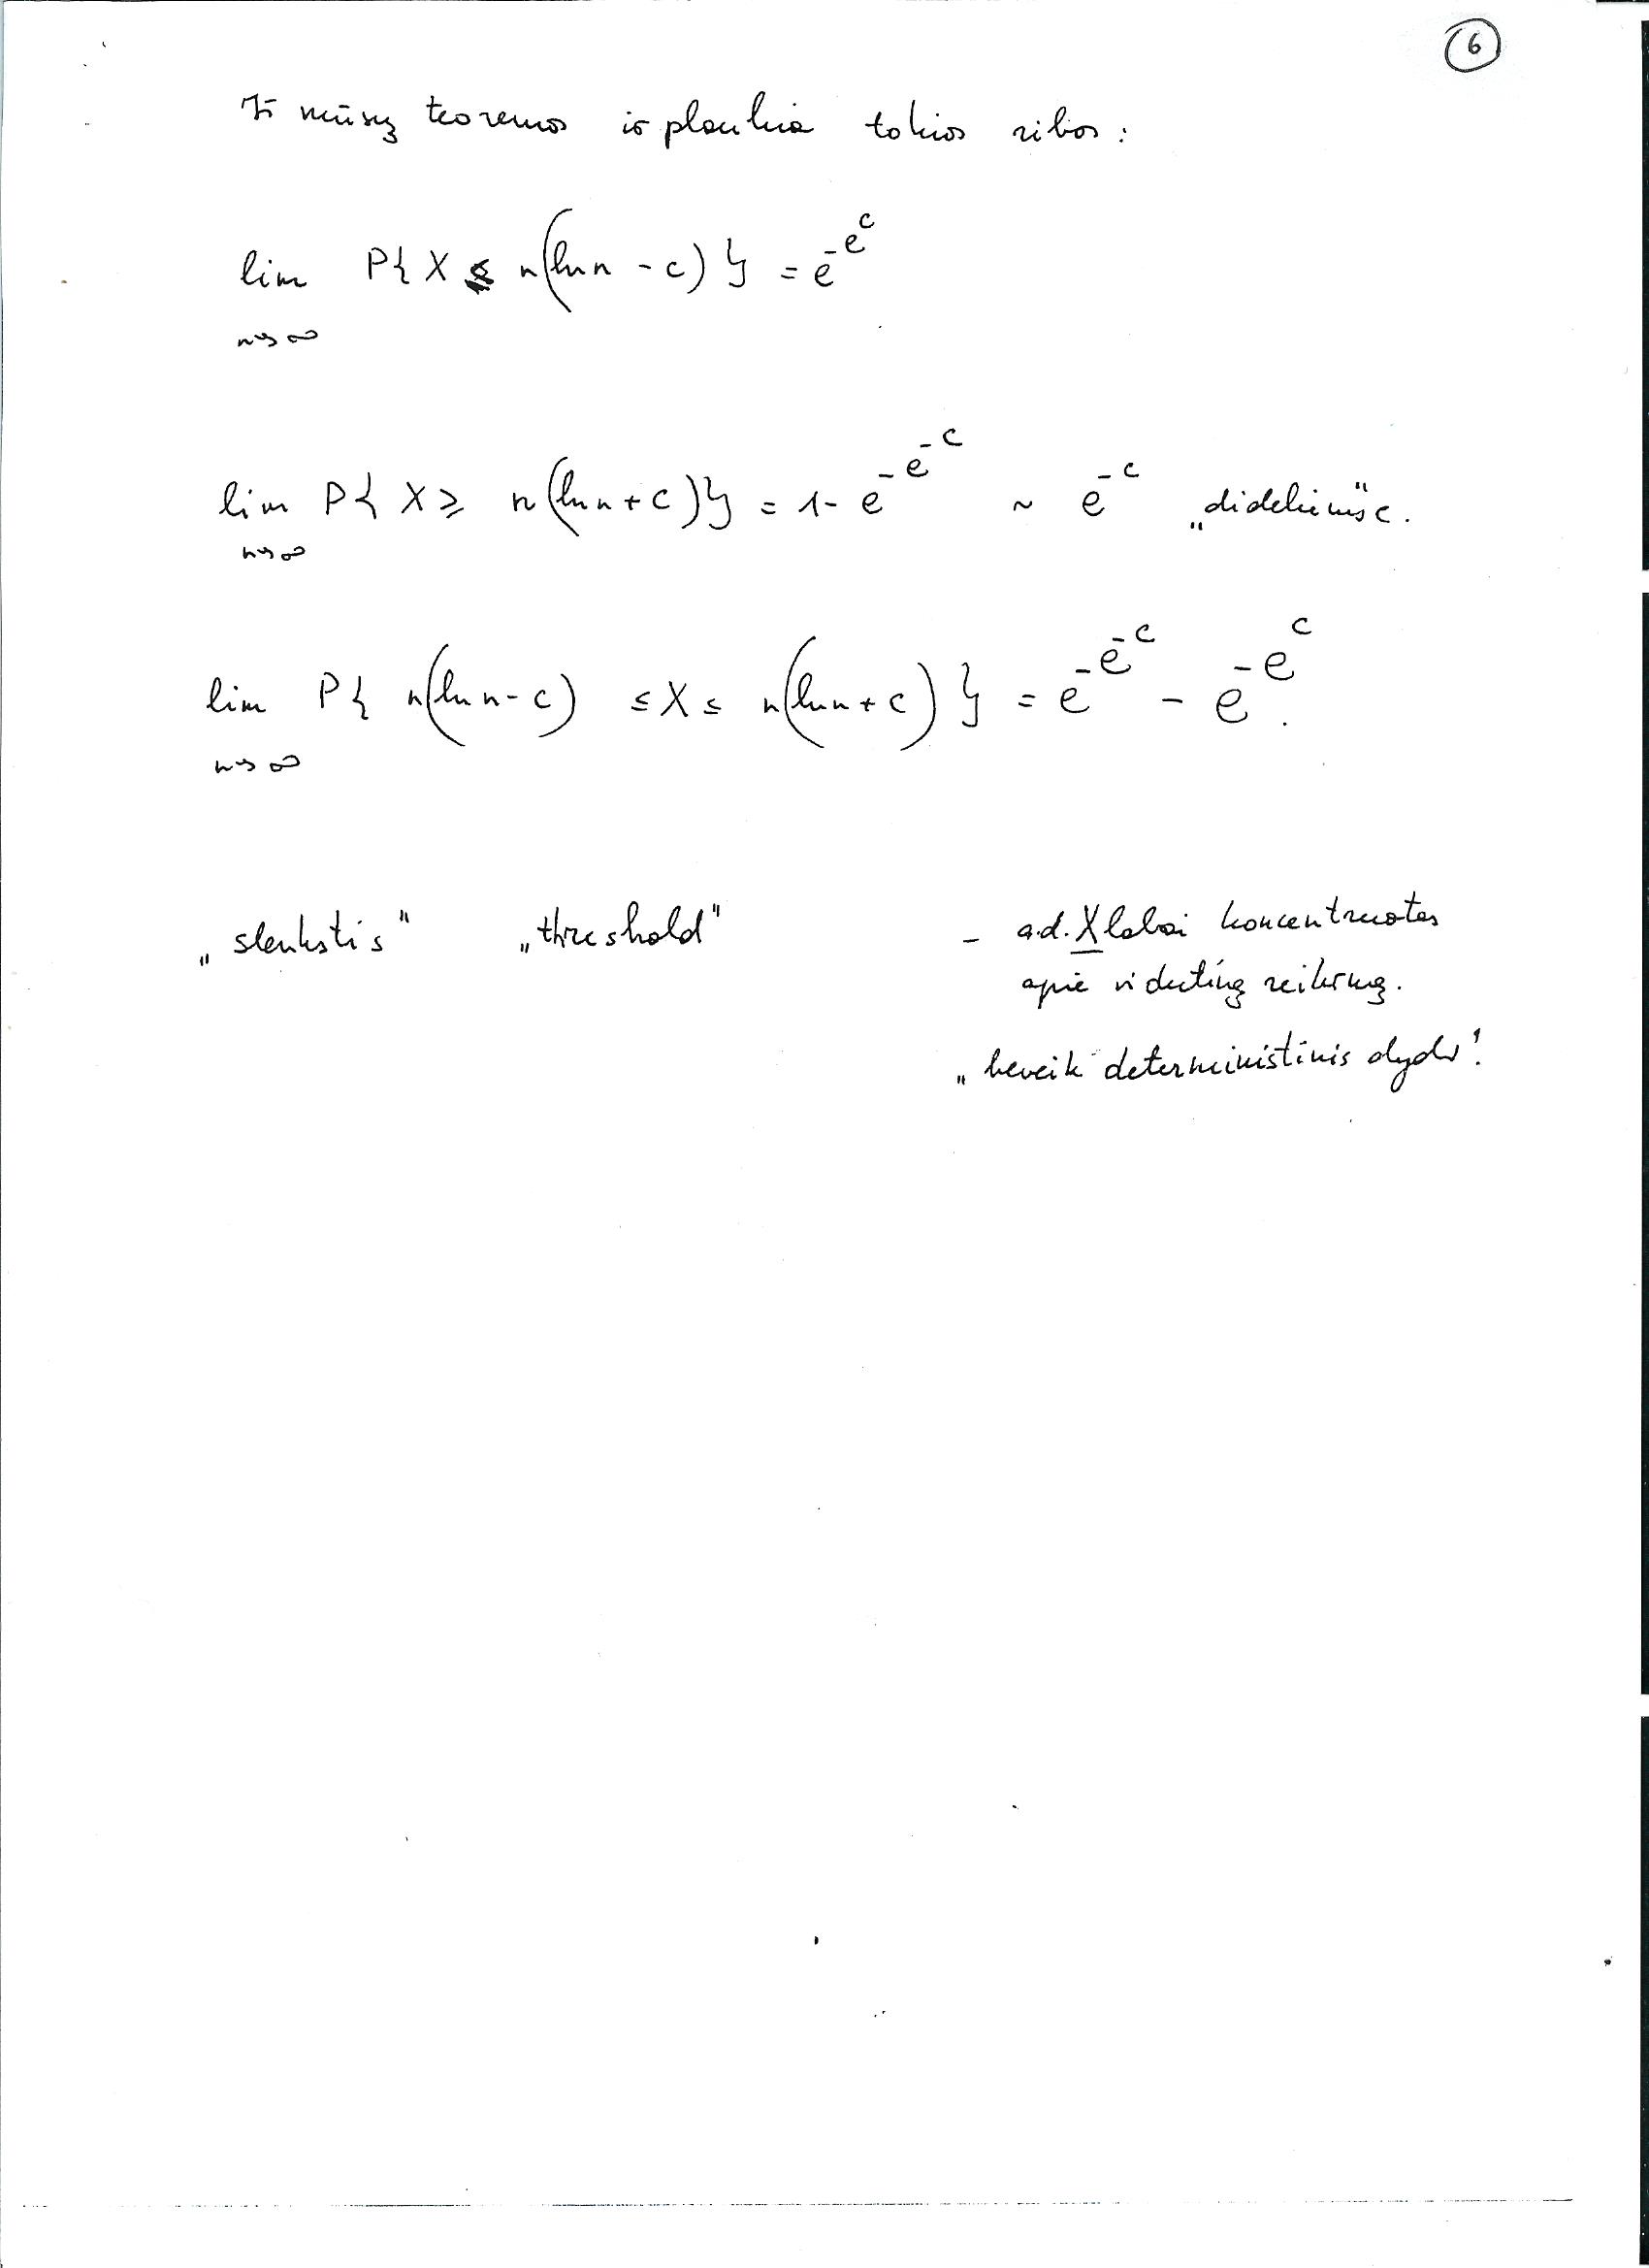 6
Iš mūsų teoremos išplaukia tokios ribos:
lim P{ X ≤ n(ln n - c) } = e^{-e^c}
n→∞
lim P{ X ≥ n(ln n + c) } = 1 - e^{-e^{-c}} ~ e^{-c} „dideliems" c.
n→∞
lim P{ n(ln n - c) ≤ X ≤ n(ln n + c) } = e^{-e^{-c}} - e^{-e^c}.
n→∞
„slenkstis" „threshold" - a.d. X labai koncentruotas
apie vidutinę reikšmę.
„beveik deterministinis dydis"!